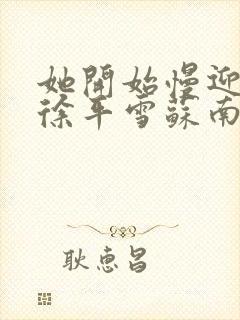 她開始慢迎
徐年雪蘇南
耿惠昌